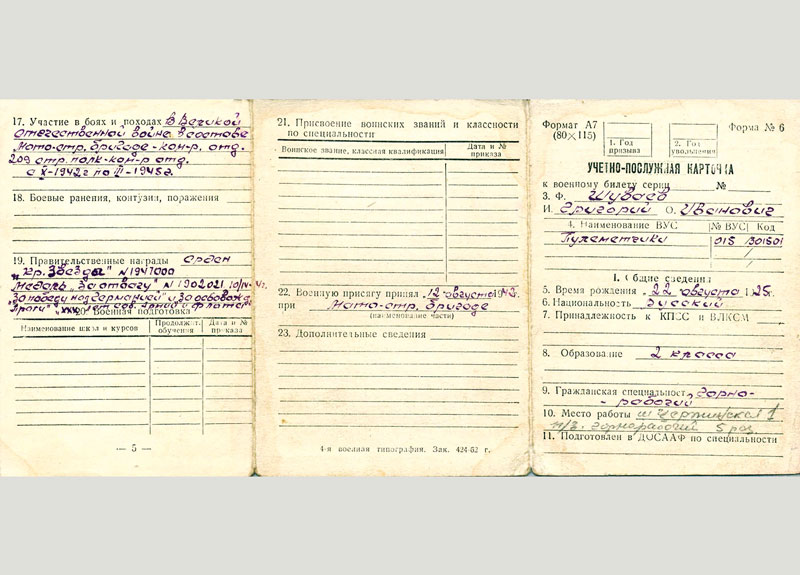 17. Участие в боях и походах В Великой
Отечественной войне в составе
Мото-стр. бригаде-ком-р. отд.
209 стр. полк-ком-р отд.
с X-1942г по III-1945г.
18. Боевые ранения, контузии, поражения
19. Правительственные награды Орден
"Кр. Звезды" N 1947000
Медаль "За отвагу" N 1902021
"За победу над Германией" и "За освобожд.
Праги", "XXX лет сов. армии и флота"
20. Военная подготовка
Наименование школ и курсов
Продолжит. обучения
Дата и № приказа
— 5 —
21. Присвоение воинских званий и классности
по специальности
Воинское звание, классная квалификация
Дата и №
приказа
22. Военную присягу принял 12 августа 1942г.
при Мото-стр. бригаде
(наименование части)
23. Дополнительные сведения
4-я военная типография. Зак. 424-62 г.
Формат А7
(80×115)
1. Год
призыва
2. Год
увольнения
Форма № 6
УЧЕТНО-ПОСЛУЖНАЯ КАРТОЧКА
к военному билету серии №
3. Ф. Шуваев
И. Григорий О. Иванович
4. Наименование ВУС № ВУС Код
Пулеметчики 018
1. Общие сведения
5. Время рождения 22 августа 1925г.
6. Национальность русский
7. Принадлежность к КПСС и ВЛКСМ
8. Образование 2 класса
9. Гражданская специальност горно-
-рабочий
10. Место работы ш. Чертинская 1
горнорабочий 5 раз
11. Подготовлен в ДОСААФ по специальности